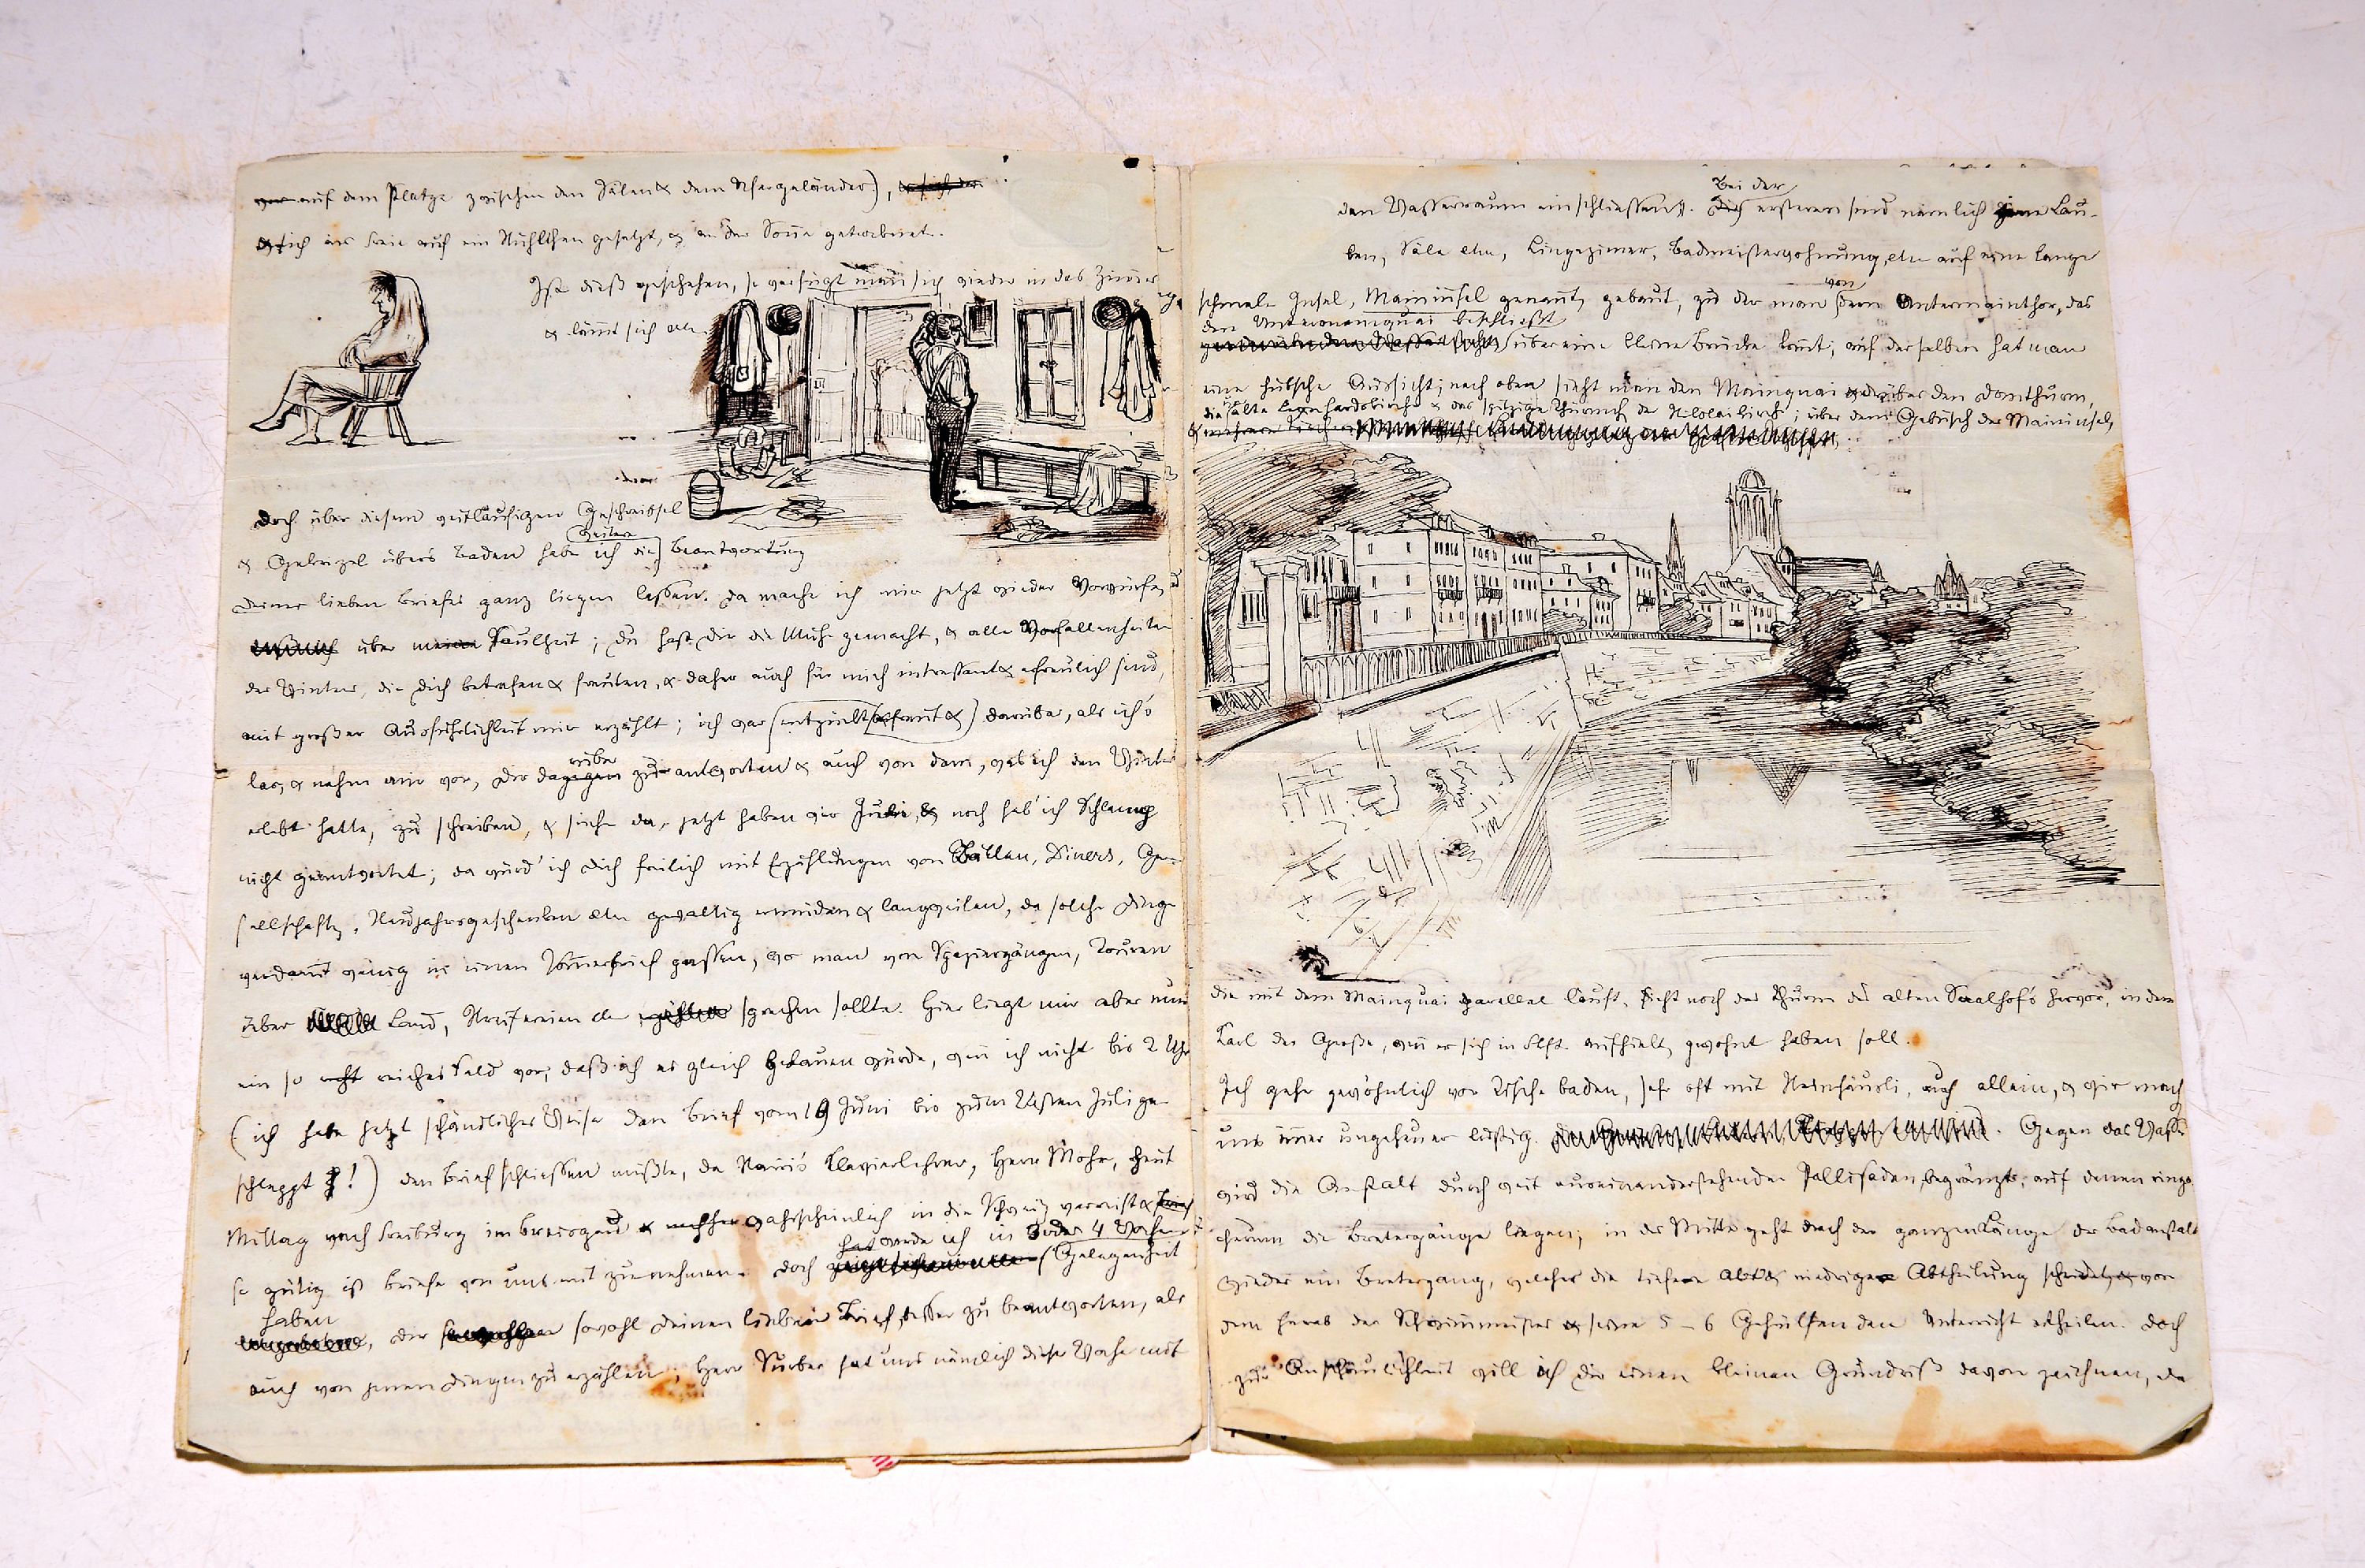 auf dem Platze zwischen den Sälen & dem Ufergeländer),
sich ins Freie auf ein Stühlchen gesetzt, & an der Soñe getrocknet.
Ist dieß geschehen, so verfügt man sich wieder in das Zim̃er
& käm̃t sich etc.
Doch über diesem weitläufigen Geschreibsel
& Gekrizel über's Baden habe ich die Beantwortung
Deines lieben Briefes ganz liegen lassen. Da mache ich mir jetzt wieder Vorwürfe
über meine Faulheit; Du hast Dir die Mühe gemacht, & alle Vorfallenheiten
des Winters, die Dich betrafen & freuten, & daher auch für mich intressant & erfreulich sind,
mit großer Ausführlichkeit mir erzählt; ich war entzückt darüber, als ich's
las, & nahm mir vor, Dir darüber zu antworten & auch von dem, was ich den Winter
erlebt hatte, zu schreiben, & siehe da, jetzt haben wir Juli, & noch hab' ich Schlamp
nicht geantwortet; da würd' ich Dich freilich mit Erzählungen von Bällen, Diners, Ge-
sellschaften, Neujahrsgeschenken etc gewaltig ermüden & langweilen, da solche Dinge
verdam̃t wenig in einen Som̃erbrief passen, wo man von Spaziergängen, Touren
über Land, etc sprechen sollte. Hier liegt mir aber nun
ein so reiches Feld vor, daß ich es gleich bebauen würde, weñ ich nicht bis 2 Uhr
(ich habe jetzt schändlicher Weise den Brief vom 19 Juni bis zum Juli ge-
schleppt!) den Brief schliessen müßte, da Klavierlehrer, Herr Mohr, heut
Mittag nach Freiburg im Breisgau & wahrscheinlich in die Schweiz verreist &
so gütig ist Briefe von uns mit zu nehmen. Doch werde ich in 3 oder 4 Wochen Gelegenheit
haben, Dir sowohl Deinen lieben Brief besser zu beantworten, als
auch von jenen Dingen zu erzählen; Herr hat uns nämlich diese Woche mit
den Wasserraum einschliessen. Bei der ersteren sind nämlich jene Lau-
ben, Säle etc, Badmeisterwohnung, etc auf eine lange
schmale Insel, Maininsel genañt, gebaut, zu der man von dem Untermainthor, das
den Untermainquai beschließt über eine kleine Brücke kom̃t; auf derselben hat man
eine hübsche Aussicht; nach oben sieht man den Mainquai & drüber den Domthurm,
die alte Leonhardskirche & das spitzige Thürmch. der Nikolaikirche; über dem Gebüsch der Maininsel,
die mit dem Mainquai parallel lauft, sieht noch der Thurm des alten Saalhofs hervor, in dem
Karl der Große, weñ er sich in Fkft. aufhielt, gewohnt haben soll.
Ich gehe gewöhnlich vor Tische baden, sehr oft mit, auch allein, & wir mach
uns im̃er ungeheuer lustig. Gegen das Wasser
wird die Anstalt durch weit auseinanderstehenden Pallisaden begränzt, auf denen rings
herum die Bretergänge liegen; in der Mitte geht durch die ganzen Länge der Badanstalt
wieder ein Bretergang, welcher die tiefere niedrigere Abtheilung scheidet, & von
dem herab der Schwim̃meister & seine 5 – 6 Gehülfen den Unterricht ertheilen. Doch
zur Anschaulichkeit will ich Dir einen kleinen Grundriß davon zeichnen, da